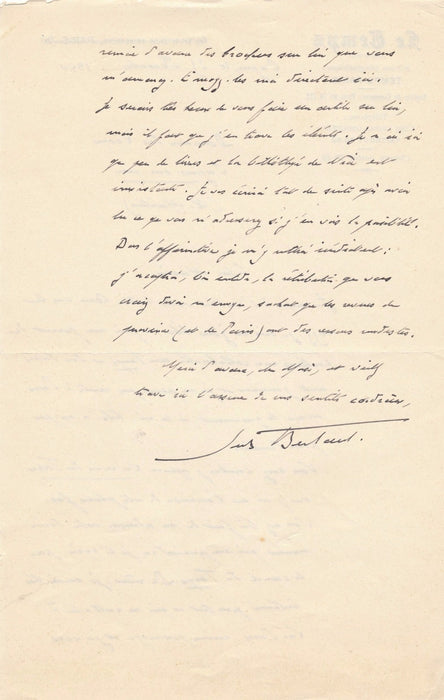 remercie d'avance des brochures sur lui que vous
m'annoncez. Envoyez-les moi directement ici.
Je serais très heureux de vous faire un article sur lui,
mais il faut que j'en trouve les éléments. Je n'ai ici
que peu de livres et la bibliothèque de Nice est
inexistante. Je vous écrirai tout de suite après avoir
lu ce que vous m'adresserez si j'en vois la possibilité.
Dans l'affirmative je m'y mettrai immédiatement ;
j'accepterai, bien entendu, la rétribution que vous
croirez devoir m'envoyer, sachant que les revues de
province (et de Paris) ont des ressources modestes.
Merci d'avance, cher Monsieur, et veuillez
trouver ici l'assurance de mes sentiments cordiaux,
Jules Bertaut.